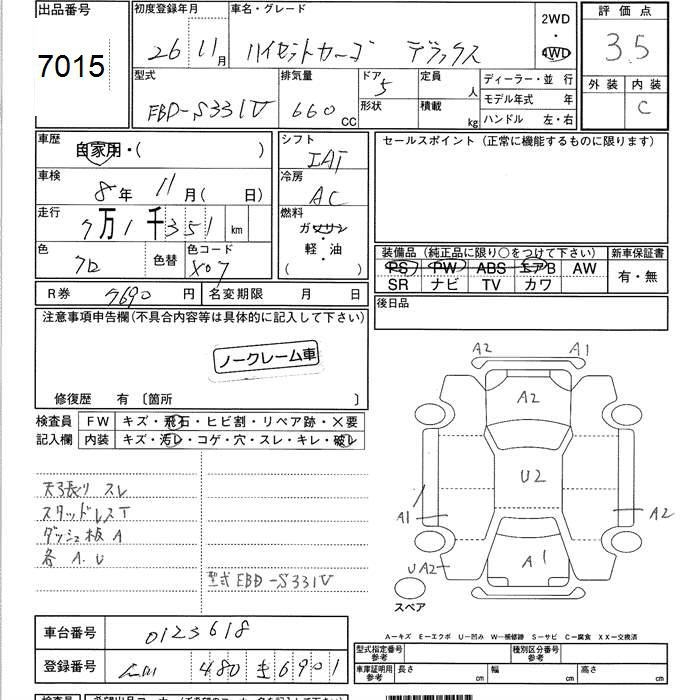 出品番号 初度登録年月 車名・グレード 2WD ・ 4WD 評価点
7015 26 11月 ハイゼットカーゴ デラックス 3.5
型式 EBD-S331V 排気量 660 CC ドア 5 形状 定員 人 積載 kg ディーラー・並 行 外装 内装
モデル年式 年 C
ハンドル 左・右
車歴 自家用・( ) シフト IAT セールスポイント (正常に機能するものに限ります)
車検 8年 11月( 日) 冷房 AC
走行 7万1千351 km 燃料 ガソリン ・ 軽・油 ( )
色 クロ 色替 色コード X07 装備品 (純正品に限り○をつけて下さい) 新車保証書
PS PW ABS エアB AW 有・無
SR ナビ TV カワ
R券 7690 円 名変期限 月 日 後日品
注意事項申告欄(不具合内容等は具体的に記入して下さい)
ノークレーム車
修復歴 有 〔箇所 〕
検査員 FW キズ・飛石・ヒビ割・リペア跡・X要
記入欄 内装 キズ・汚レ・コゲ・穴・スレ・キレ・破レ
A2 A1
A2
U2
A1 A2
A1
UA2
スペア
天張り スレ
スタッドレスT
ダッシュ板 A
各 A.U
型式 EBD-S331V
A-キズ E-エクボ U-凹み W-補修跡 S-サビ C-腐食 XX-交換済
車台番号 0123618
型式指定番号 参考 種別区分番号 参考
登録番号 480 き 6901
車庫証明用 参考 長さ cm 幅 cm 高さ cm